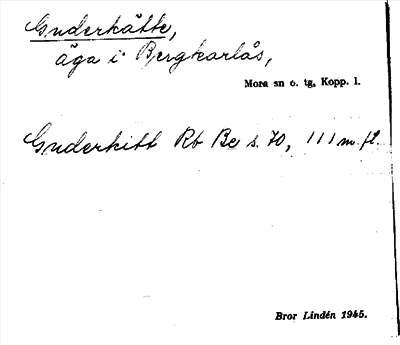 Gnderkätte,
äga i Bergkarlås,
Mora sn o. tg, Kopp. l.
Gnderkitt Rb Be s. 70, 111 m. fl.
Bror Lindén 1945.